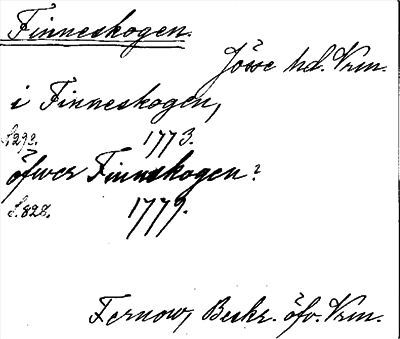 Finneskogen.
Jösse hd. Vrm.
i Finneskogen,
S.292. 1773.
öfwer Finnskogen?
S.828. 1779.
Fernow, Beskr. öfv. Vrm.